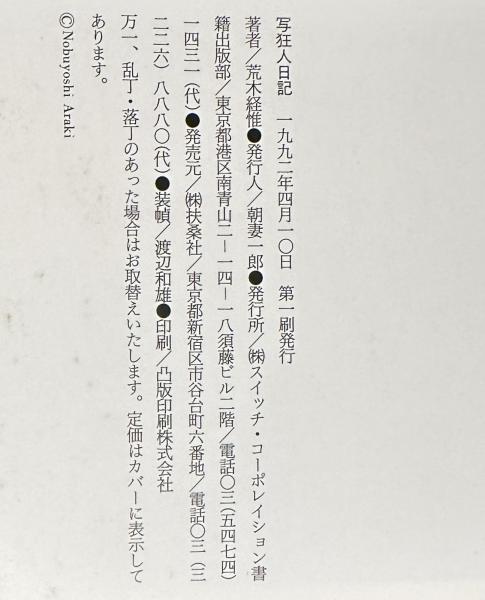 写狂人日記　一九九二年四月一〇日　第一刷発行
著者／荒木経惟●発行人／朝妻一郎●発行所／㈱スイッチ・コーポレイション書
籍出版部／東京都港区南青山二－一四－一八須藤ビル二階／電話〇三（五四七四）
一四三一（代）●発売元／㈱扶桑社／東京都新宿区市谷台町六番地／電話〇三（三
二二六）八八八〇（代）●装幀／渡辺和雄●印刷／凸版印刷株式会社
万一、乱丁・落丁のあった場合はお取替えいたします。定価はカバーに表示して
あります。
©Nobuyoshi Araki